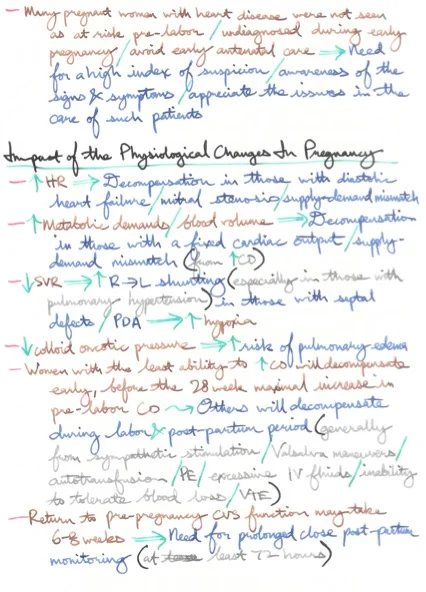 - Many pregnant women with heart disease were not seen
as at risk pre-labor / undiagnosed during early
pregnancy / avoid early antenatal care ⇒ Need
for a high index of suspicion / awareness of the
signs & symptoms / appreciate the issues in the
care of such patients
Impact of the Physiological Changes In Pregnancy
- ↑ HR ⇒ Decompensation in those with diastolic
heart failure / mitral stenosis / supply-demand mismatch
- ↑ Metabolic demands / blood volume ⇒ Decompensation
in those with a fixed cardiac output / supply-
demand mismatch (from ↑ CO)
- ↓ SVR → ↑ R→L shunting (especially in those with
pulmonary hypertension) in those with septal
defects / PDA → ↑ hypoxia
- ↓ colloid oncotic pressure ⇒ ↑ risk of pulmonary edema
- Women with the least ability to ↑ CO will decompensate
early, before the 28 week maximal increase in
pre-labor CO → Others will decompensate
during labor & post-partum period (generally
from sympathetic stimulation / Valsalva maneuvers /
autotransfusion / PE / excessive IV fluids / inability
to tolerate blood loss / VTE)
- Return to pre-pregnancy CVS function may take
6-8 weeks ⇒ Need for prolonged close post-partum
monitoring (at least 72 hours)